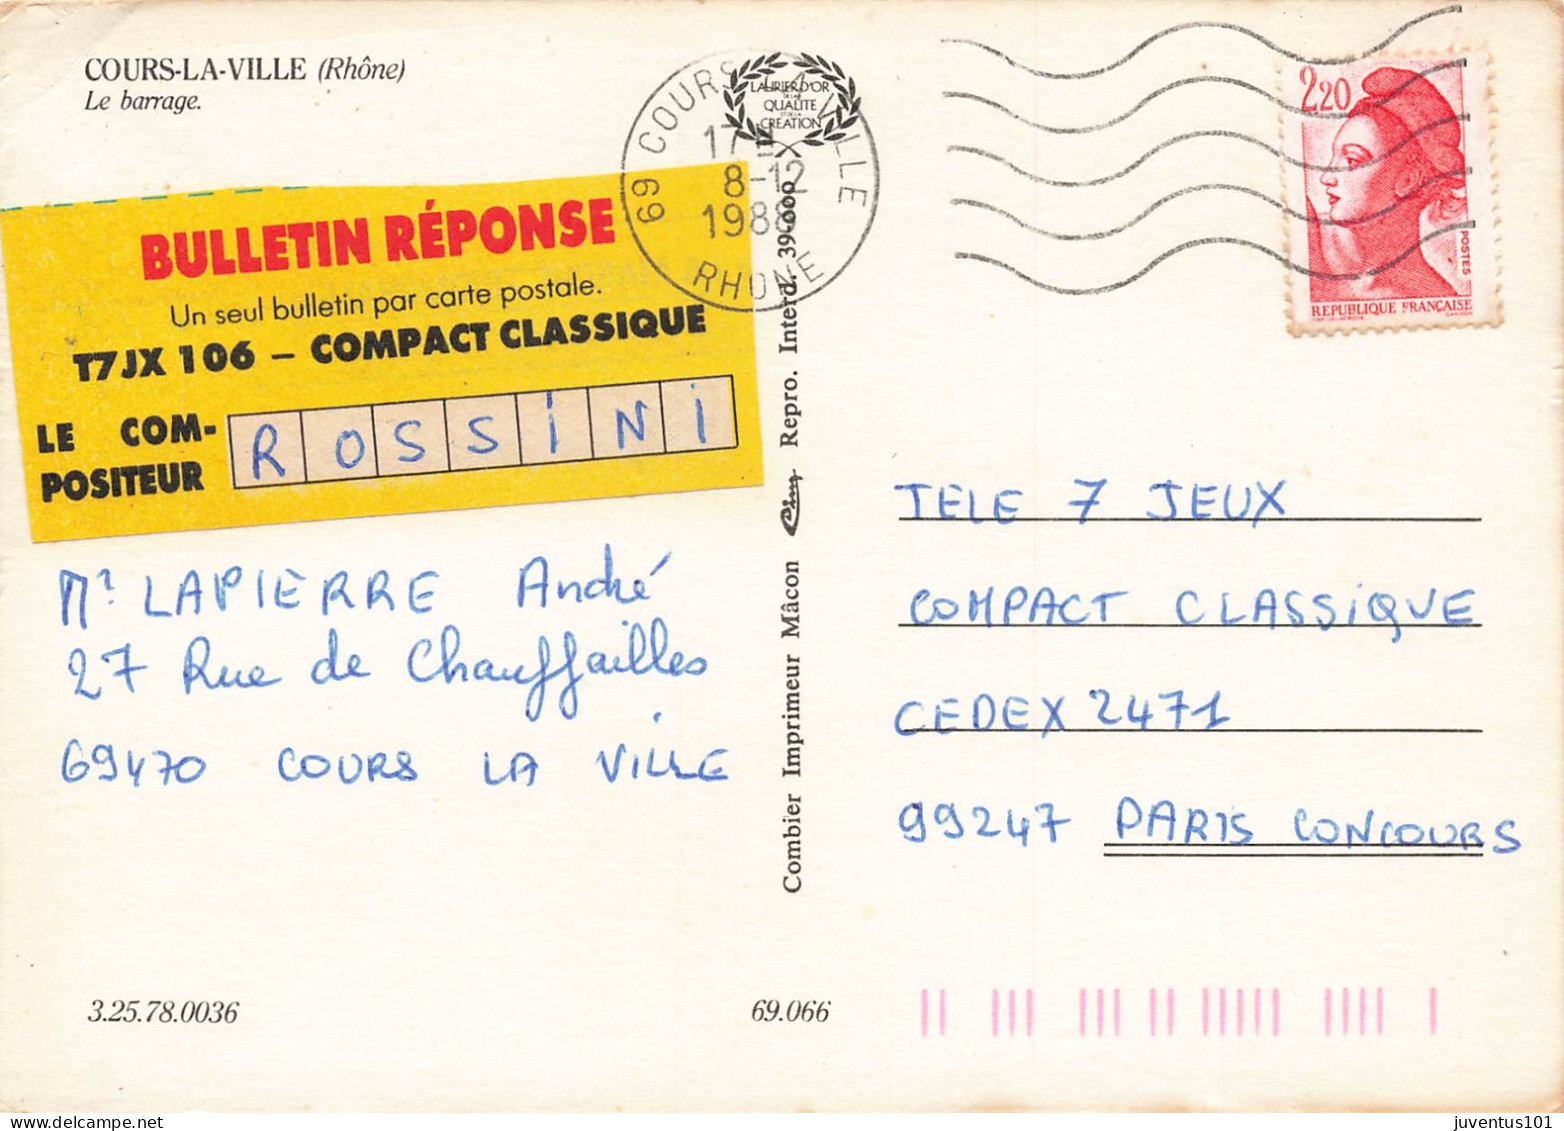 COURS-LA-VILLE (Rhône)
Le barrage.
69 COURS LA VILLE
17 H
8-12
1988
RHONE
LAURIER D'OR
DE LA
QUALITE
ET DE LA
CREATION
2,20
POSTES
REPUBLIQUE FRANÇAISE
BULLETIN RÉPONSE
Un seul bulletin par carte postale.
T7JX 106 – COMPACT CLASSIQUE
LE COM-
POSITEUR
ROSSINI
Mr LAPIERRE André
27 Rue de Chauffailles
69470 COURS LA VILLE
Combier Imprimeur Mâcon Cim Repro. Interd. 39-000
TELE 7 JEUX
COMPACT CLASSIQUE
CEDEX 2471
99247 PARIS CONCOURS
3.25.78.0036
69.066
juventus101